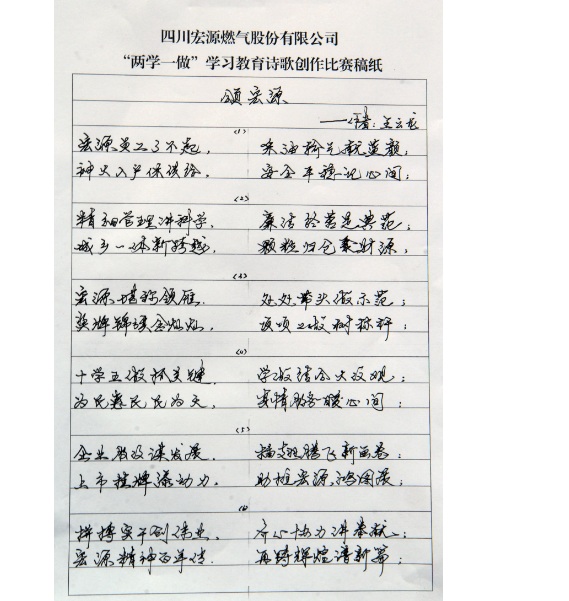 四川宏源燃气股份有限公司
“两学一做”学习教育诗歌创作比赛稿纸
颂宏源
——作者：王云龙
(1)
宏源员工了不起， 来油桥气靓蓝颜；
神火入户保供给， 安全平稳记心间；
(2)
精细管理讲科学， 廉洁经营是典范；
城乡一体新跨越， 颗粒归仓聚财源，
(3)
宏源堪称领雁， 处处带头做示范；
奖牌锦旗金灿灿， 该项之做树标杆；
(4)
十学五做抓关键， 学做结合大改观；
为民惠民民为天， 亲情服务暖心间；
(5)
企业改谋发展， 插翅腾飞新画卷；
上市挂牌添动力， 助推宏源鸿图展；
(6)
拼搏实干创伟业， 齐心协力讲奉献；
宏源精神百年传， 再铸辉煌谱新篇；